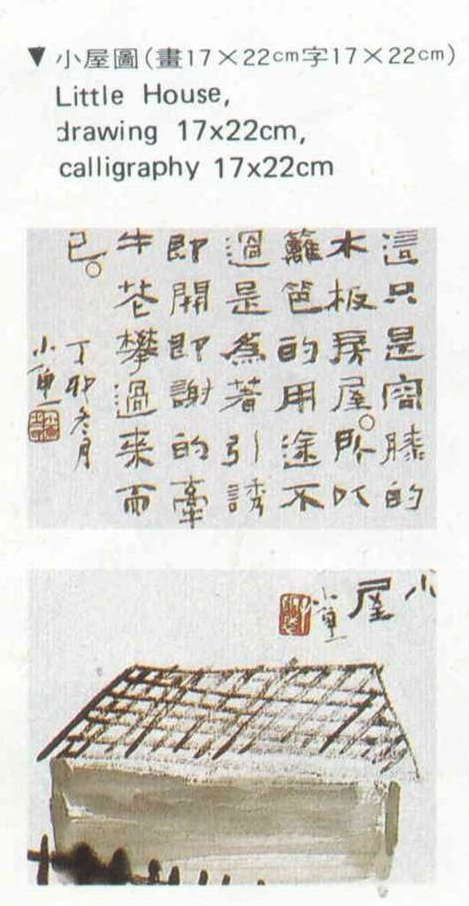 ▼小屋圖(畫17×22cm字17×22cm)
Little House,
drawing 17x22cm,
calligraphy 17x22cm
這只是容膝的
木板房屋。所以
籬笆的用途不
過是為著引誘
即開即謝的牽
牛花攀過來而
已。
丁卯冬月
小屋